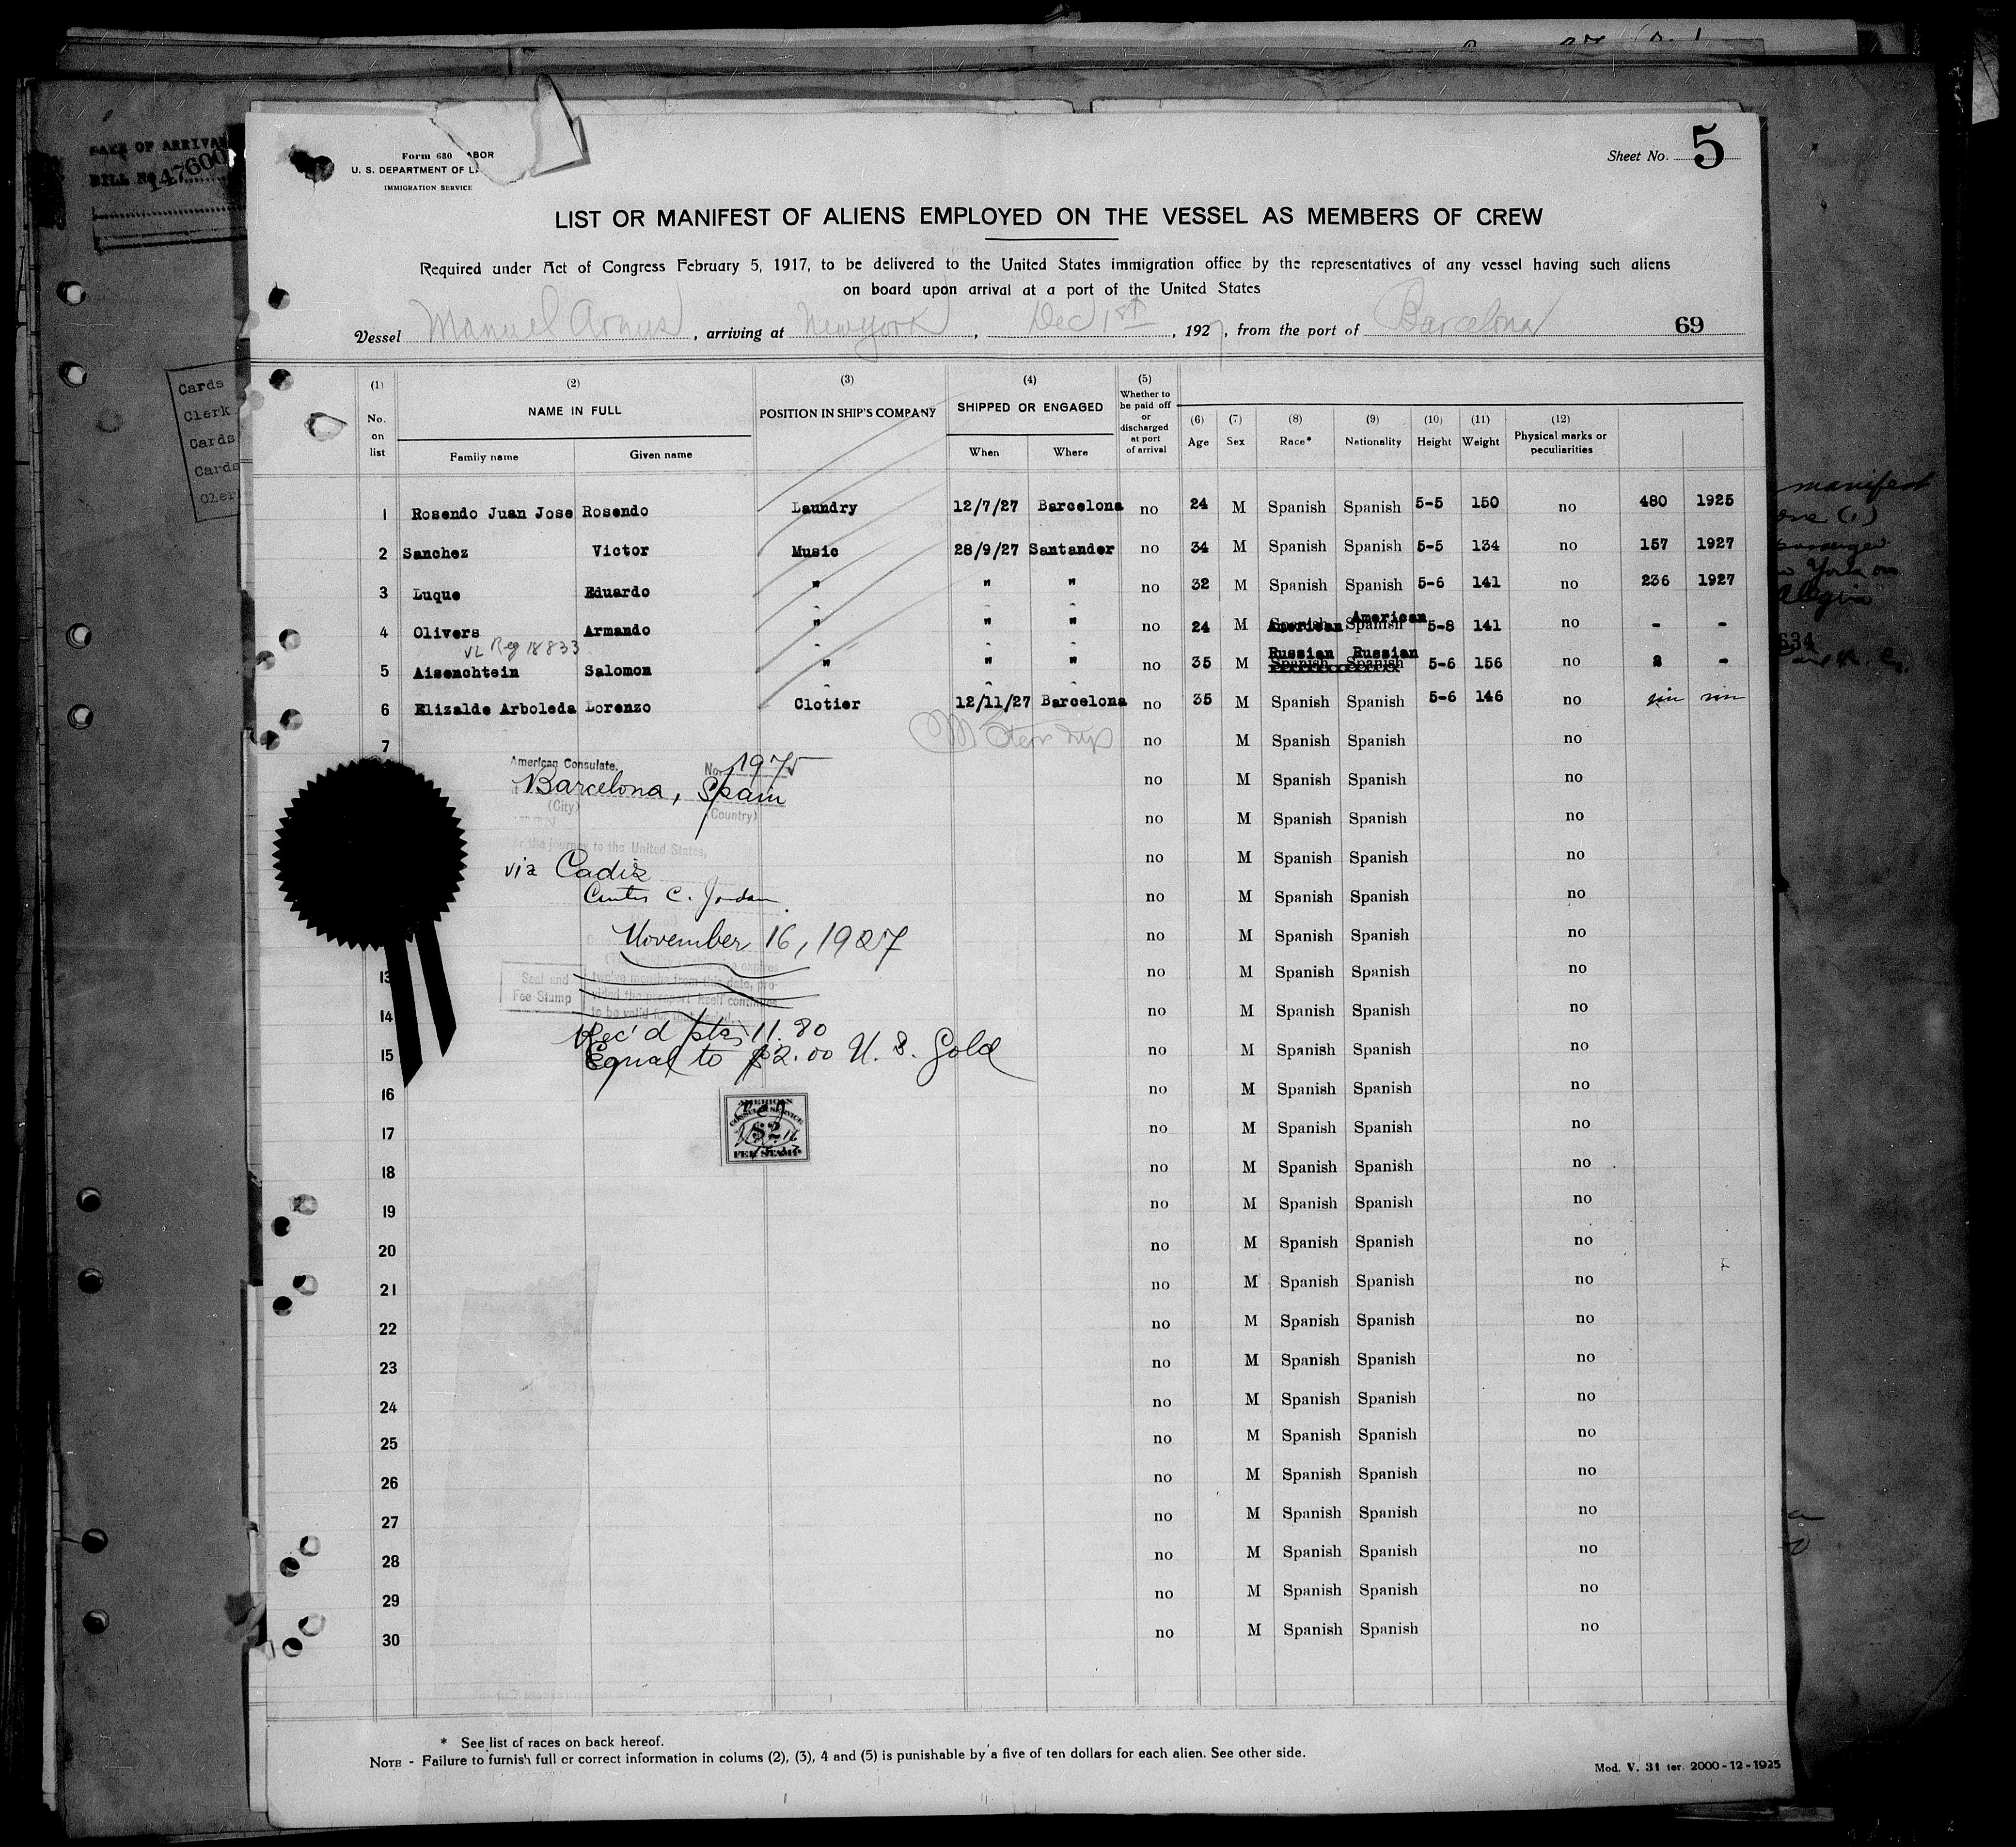 DATE OF ARRIVAL
BILL NO
147600
Cards
Clerk
Cards
Cards
Clerk
manifest
one (1)
passenger
York on
Form 680
U. S. DEPARTMENT OF LABOR
IMMIGRATION SERVICE
Sheet No. 5
LIST OR MANIFEST OF ALIENS EMPLOYED ON THE VESSEL AS MEMBERS OF CREW
Required under Act of Congress February 5, 1917, to be delivered to the United States immigration office by the representatives of any vessel having such aliens
on board upon arrival at a port of the United States
Vessel Manuel Arnus, arriving at New York, Dec 1st, 1927, from the port of Barcelona 69
(1) (2) (3) (4) (5)
No. on list NAME IN FULL POSITION IN SHIP'S COMPANY SHIPPED OR ENGAGED Whether to be paid off or discharged at port of arrival
Family name Given name When Where
(6) (7) (8) (9) (10) (11) (12)
Age Sex Race* Nationality Height Weight Physical marks or peculiarities
1 Rosendo Juan Jose Rosendo Laundry 12/7/27 Barcelona no 24 M Spanish Spanish 5-5 150 no 480 1925
2 Sanchez Victor Music 28/9/27 Santander no 34 M Spanish Spanish 5-5 134 no 157 1927
3 Luque Eduardo " " " no 32 M Spanish Spanish 5-6 141 no 236 1927
4 Olivers Armando " " " no 24 M American American 5-8 141 no - -
VL Reg 18833
5 Aisenchtein Salomon " " " no 35 M Russian Russian 5-6 156 no 2 -
6 Elizalde Arboleda Lorenzo Clotier 12/11/27 Barcelona no 35 M Spanish Spanish 5-6 146 no sin sin
7 no M Spanish Spanish no
no M Spanish Spanish no
no M Spanish Spanish no
no M Spanish Spanish no
no M Spanish Spanish no
no M Spanish Spanish no
13 no M Spanish Spanish no
14 no M Spanish Spanish no
15 no M Spanish Spanish no
16 no M Spanish Spanish no
17 no M Spanish Spanish no
18 no M Spanish Spanish no
19 no M Spanish Spanish no
20 no M Spanish Spanish no
21 no M Spanish Spanish no
22 no M Spanish Spanish no
23 no M Spanish Spanish no
24 no M Spanish Spanish no
25 no M Spanish Spanish no
26 no M Spanish Spanish no
27 no M Spanish Spanish no
28 no M Spanish Spanish no
29 no M Spanish Spanish no
30 no M Spanish Spanish no
American Consulate. No. 1975
Barcelona, Spain
(City) (Country)
the journey to the United States,
via Cadiz
Curtis C. Jordan.
November 16, 1927
Seal and
Fee Stamp
expires
twelve months from this date, pro-
vided the passport itself continues
to be valid for that period.
Rec'd ptas 11.80
Equal to $2.00 U. S. Gold
AMERICAN
CONSULAR SERVICE
$2
FEE STAMP
* See list of races on back hereof.
NOTE - Failure to furnish full or correct information in colums (2), (3), 4 and (5) is punishable by a five of ten dollars for each alien. See other side.
Mod. V. 31 ter. 2000-12-1925